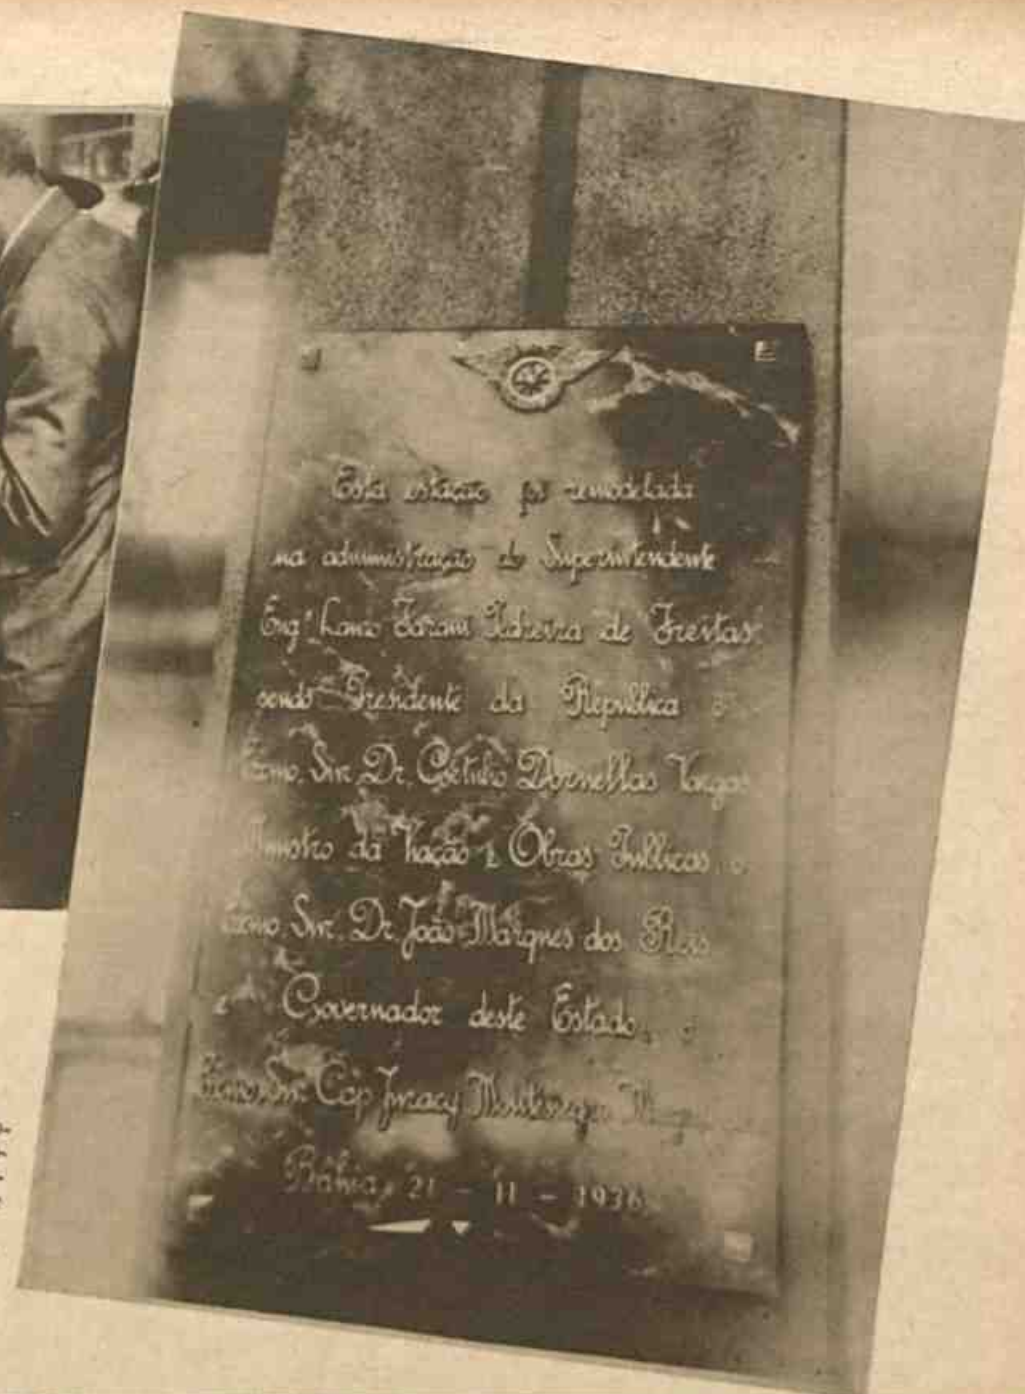 Esta estação foi remodelada
na administração do Superintendente
Eng.º Lauro Farani Pedreira de Freitas,
sendo Presidente da República o
Exmo. Snr. Dr. Getulio Dornellas Vargas
Ministro da Viação e Obras Publicas, o
Exmo. Snr. Dr. João Marques dos Reis
e Governador deste Estado, o
Exmo. Snr. Cap. Juracy Montenegro
Bahia, 21 - 11 - 1936